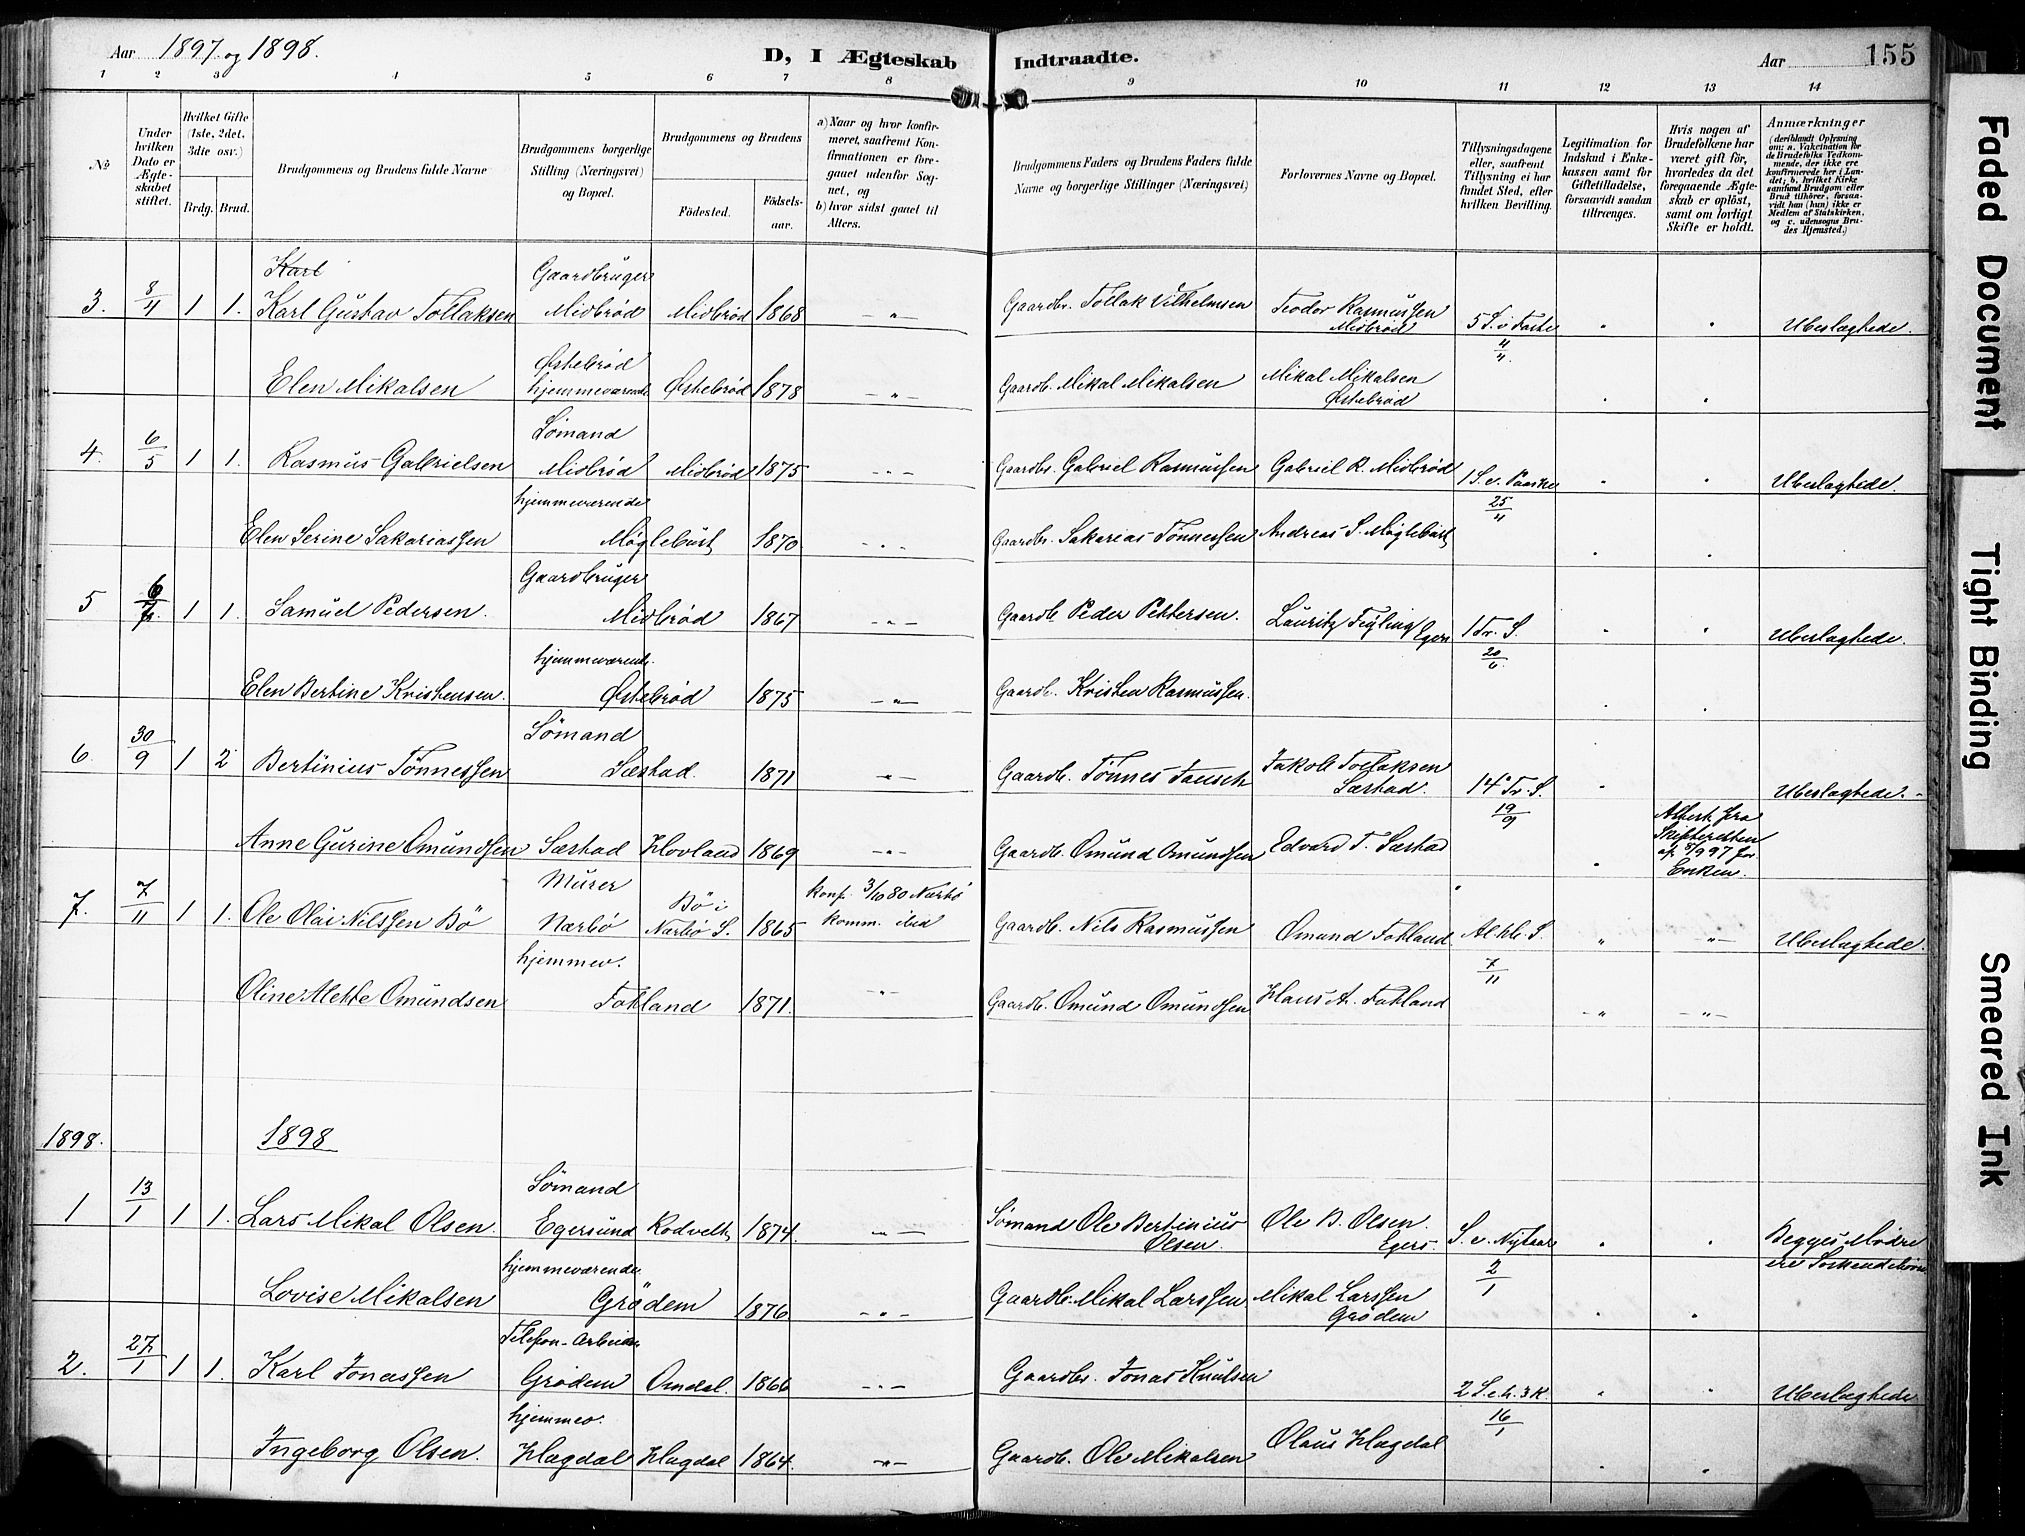 Aar 1897 og 1898. D, I Ægteskab Indtraadte. Aar 155
1 2 3 4 5 6 7 8 9 10 11 12 13 14
No
Under hvilken Dato er Ægteskabet stiftet.
Hvilket Gifte (1ste, 2det, 3die osv.)
Brdg. Brud.
Brudgommens og Brudens fulde Navne
Brudgommens borgerlige Stilling (Næringsvei) og Bopæl.
Brudgommens og Brudens
Födested. Födselsaar.
a) Naar og hvor konfirmeret, saafremt Konfirmationen er foregaaet udenfor Sognet, og
b) hvor sidst gaaet til Alters.
Brudgommens Faders og Brudens Faders fulde Navne og borgerlige Stillinger (Næringsvei)
Forlovernes Navne og Bopæl.
Tillysningsdagene eller, saafremt Tillysning ei har fundet Sted, efter hvilken Bevilling.
Legitimation for Indskud i Enkekassen samt for Giftetilladelse, forsaavidt saadan tiltrænges.
Hvis nogen af Brudefolkene har været gift för, hvorledes da det foregaaende Ægteskab er oplöst, samt om lovligt Skifte er holdt.
Anmærkninger
(deriblandt Oplysning om: a. Vakcination for de Brudefolks Vedkommende, der ikke ere konfirmerede her i Landet; b. hvilket Kirkesamfund Brudgom eller Brud tilhörer, forsaavidt han (hun) ikke er Medlem af Statskirken, og c. udensogns Brudes Hjemsted.)
Karl Gaardbruger
3. 8/4 1 1. Karl Gustav Tollaksen Midbrød Midbrød 1868 - " - Gaardbr. Tollak Vilhelmsen Teodor Rasmussen Midbrød 5 S. i Faste 4/4. " " Ubeslægtede.
Østebrød
Elen Mikalsen hjemmeværende Østebrød 1878 - " - Gaardb. Mikal Mikalsen Mikal Mikalsen Østebrød
Sømand
4. 6/5 1 1. Rasmus Gabrielsen Midbrød Midbrød 1875 - " - Gaardbr. Gabriel Rasmussen Gabriel R. Midbrød 1 S. e. Paaske 25/4 " " Ubeslægtede.
hjemmeværende
Elen Serine Sakariassen Møglebust 1870 - " - Gaardbr. Sakarias Tønnessen Andreas S. Møglebust
Gaardbruger
5 6/7. 1 1. Samuel Pedersen. Midbrød 1867 - " - Gaardb. Peder Pettersen. Lauritz Egers 1 Tr. S. 20/6 " " Ubeslægtede.
hjemmeværende.
Elen Bertine Kristensen. Østebrød 1875 - " - Gaardb. Kristen Rasmussen.
Sømand
6. 30/9 1 2 Bertinius Tønnessen Sæstad. 1871 - " - Gaardb. Tønnes Jakob Tollaksen Sæstad. 14 Tr. S. 19/9 " Ubeslægtede. -
Anne Gurine Omundsen Sæstad Hovland 1869 - " - Gaardb. Omund Omundsen Edvard T. Sæstad " Attest fra Skifteretten af 8/9 97 for Enken.
Murer
7. 7/11 1 1. Ole Olai Nilssen Bö Nærbö Bö i Nærbö S. 1865 konf. 3/10 80 Nærbö komm. ibid Gaardb. Nils Rasmussen Omund Fotland Al. hl. S. 7/11 " - " - Ubeslægtede.
hjemmev.
Oline Mette Omundsen Fotland 1871. - " - Gaardb. Omund Omundsen Hans A. Fotland - " - - " -
1898. 1898
Sømand
1 13/1 1 1. Lars Mikal Olsen. Egersund Rodvelt 1874. - " - Sømand Ole Bertinius Olsen. Ole B. Olsen. Egers. S. e. Nytaar 2/1 " " Begges Mødre ere Søskendebørn
hjemmeværende.
Lovise Mikalsen Grødem 1876 - " - Gaardb. Mikal Larssen Mikal Larssen Grødem
Telefon-Arbeider
2. 27/1 1 1. Karl Jonassen Grødem Omdal. 1866 - " - Gaardbr. Jonas Knutsen 2 S. e. h. 3 K. 16/1 " " Ubeslægtede
hjemmev.
Ingeborg Olsen. Hagdal Hagdal 1864. - " - Gaardb. Ole Mikalsen Olaus Hagdal
Faded Document
Tight Binding
Smeared Ink